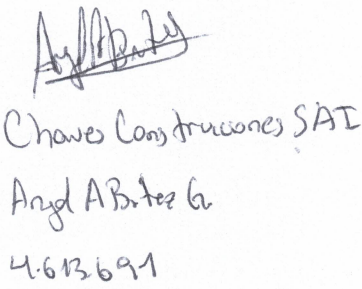 Chaves Construcciones SAI
Angel A Britez G
4.613.691